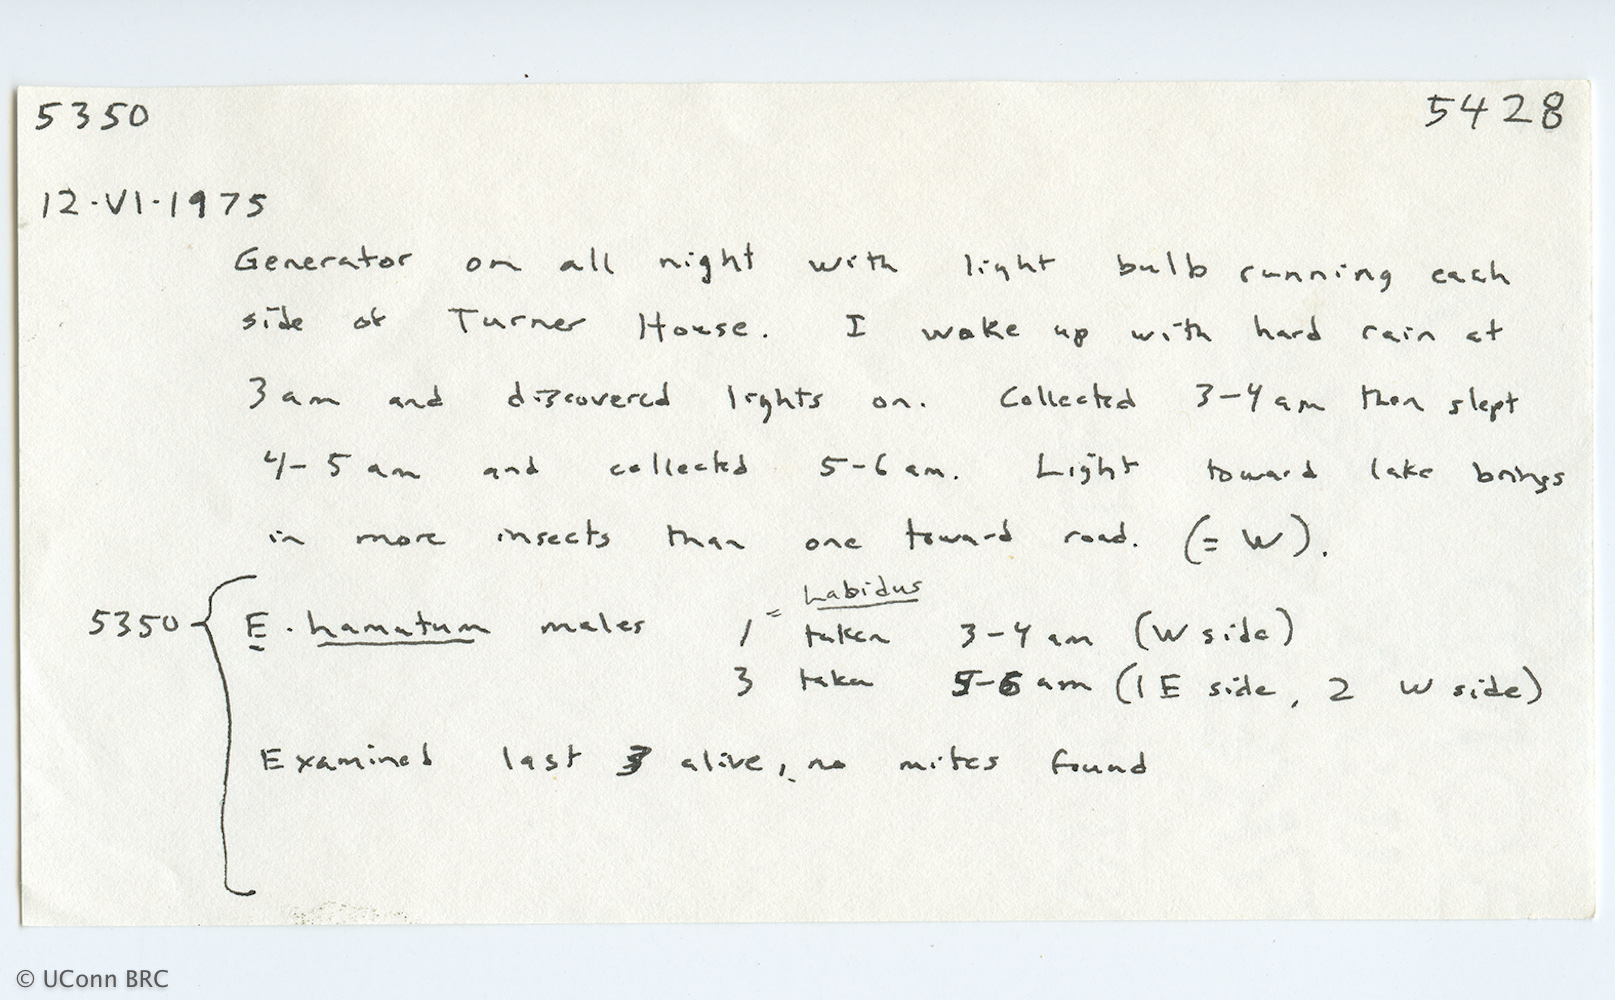 5350 5428
12·VI·1975
Generator on all night with light bulb running each
side of Turner House. I woke up with hard rain at
3 am and discovered lights on. Collected 3-4 am then slept
4-5 am and collected 5-6 am. Light toward lake brings
in more insects than one toward road. (= W).
= Labidus
5350 E. hamatum males 1 taken 3-4 am (W side)
3 taken 5-6 am (1 E side, 2 W side)
Examined last 3 alive, no mites found
© UConn BRC